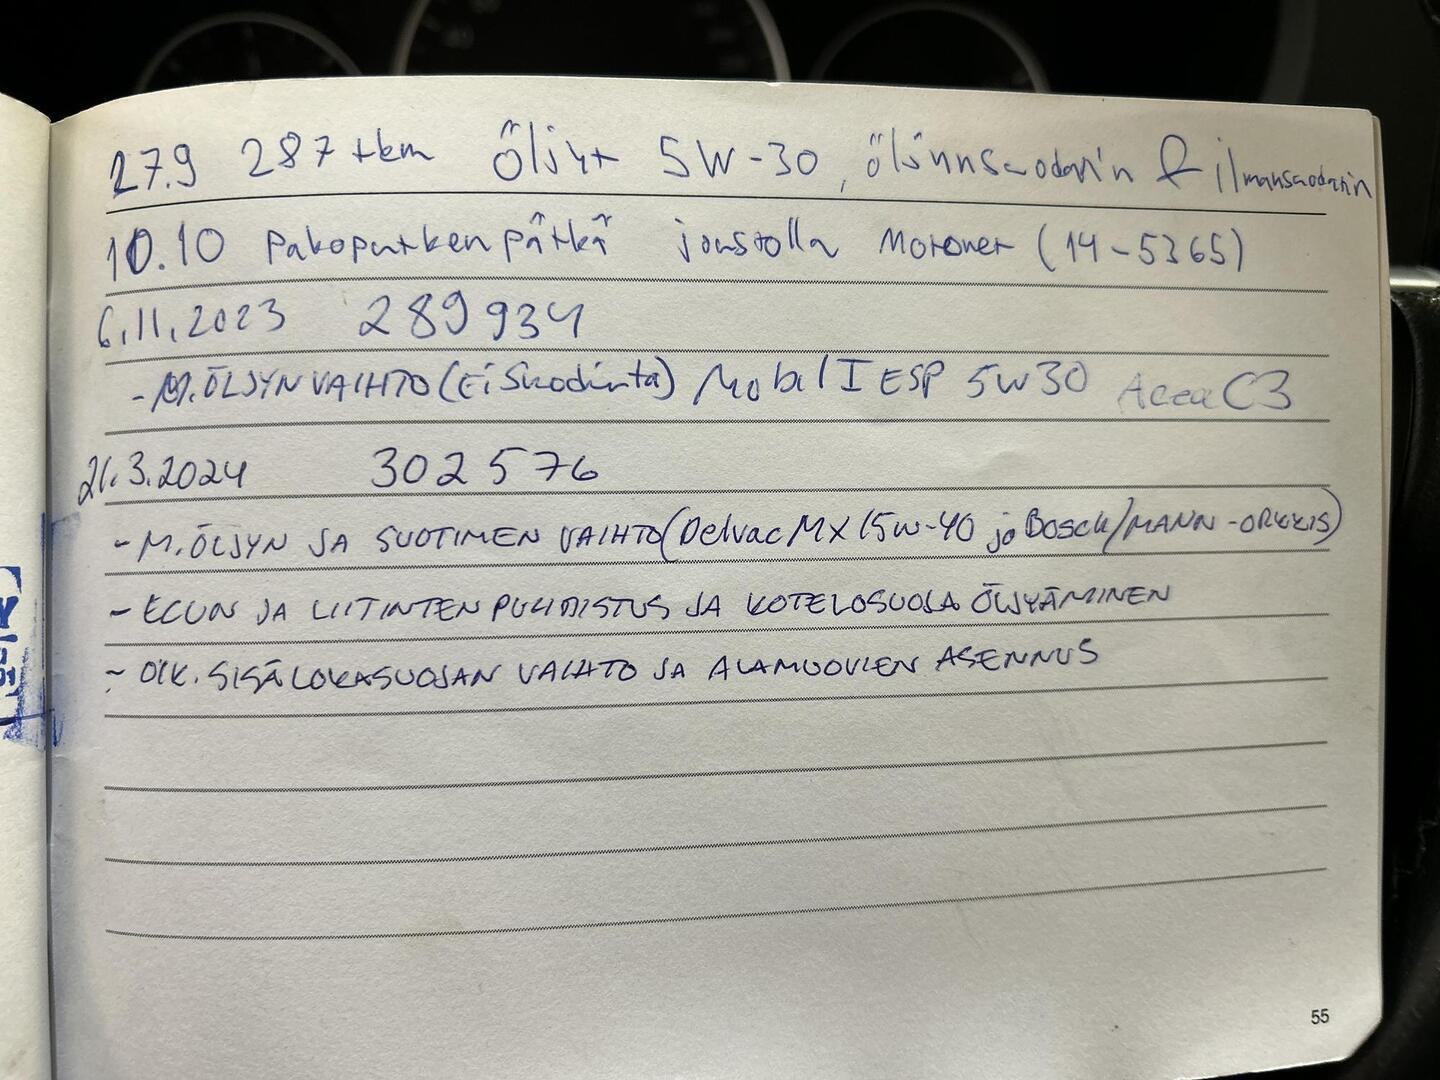 27.9 287 tkm Öljyt 5W-30, öljynsuodatin & ilmansuodatin
10.10 Pakoputkenpätkä joustolla Motonet (14-5365)
6.11.2023 289934
-M.ÖLJYN VAIHTO (Ei Suodinta) Mobil 1 ESP 5W30 Acea C3
21.3.2024 302576
- M.ÖLJYN JA SUOTIMEN VAIHTO (Delvac MX 15W-40 ja Bosch/MANN-ORKKIS)
- ECUN JA LIITINTEN PUHDISTUS JA KOTELOSUOJA ÖLJYÄMINEN
- OIK. SISÄLOKASUOJAN VAIHTO JA ALAMUOVIEN ASENNUS
55